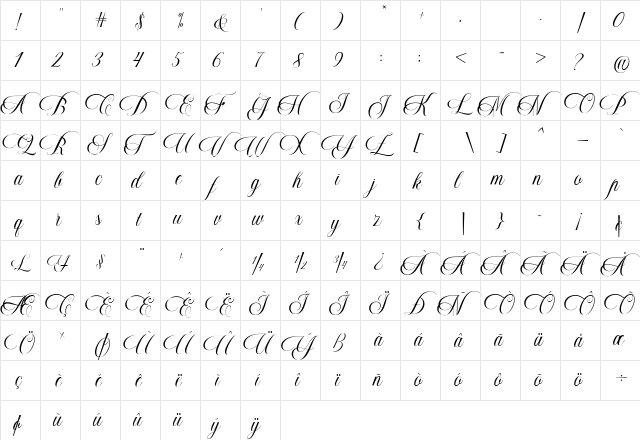 ! " # $ % & ' ( ) * + . . / 0
1 2 3 4 5 6 7 8 9 : : < - > ? @
A B C D E F G H I J K L M N O P
Q R S T U V W X Y Z [ \ ] ^ _ `
a b c d e f g h i j k l m n o p
q r s t u v w x y z { | } - ¡ ¢
£ ¥ § ¨ + ´ 1/4 1/2 3/4 ¿ À Á Â Ã Ä Å
Æ Ç È É Ê Ë Ì Í Î Ï Ð Ñ Ò Ó Ô Õ
Ö × Ø Ù Ú Û Ü Ý ß à á â ã ä å æ
ç è é ê ë ì í î ï ñ ò ó ô õ ö ÷
ø ù ú û ü ý ÿ